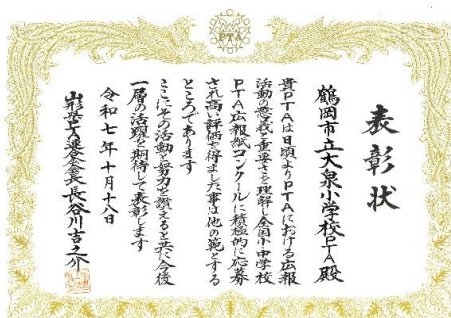 PTA
表彰状
鶴岡市立大泉小学校PTA殿
貴PTAは日頃よりPTAにおける広報
活動の意義と重要さを理解し全国小中学校
PTA広報紙コンクールに積極的に応募
され高い評価を得ました事は他の範とする
ところであります
ここにその活動と努力を讃えると共に今後
一層の活躍を期待して表彰します
令和七年十月十八日
山形県PTA連合会会長 長谷川吉之介